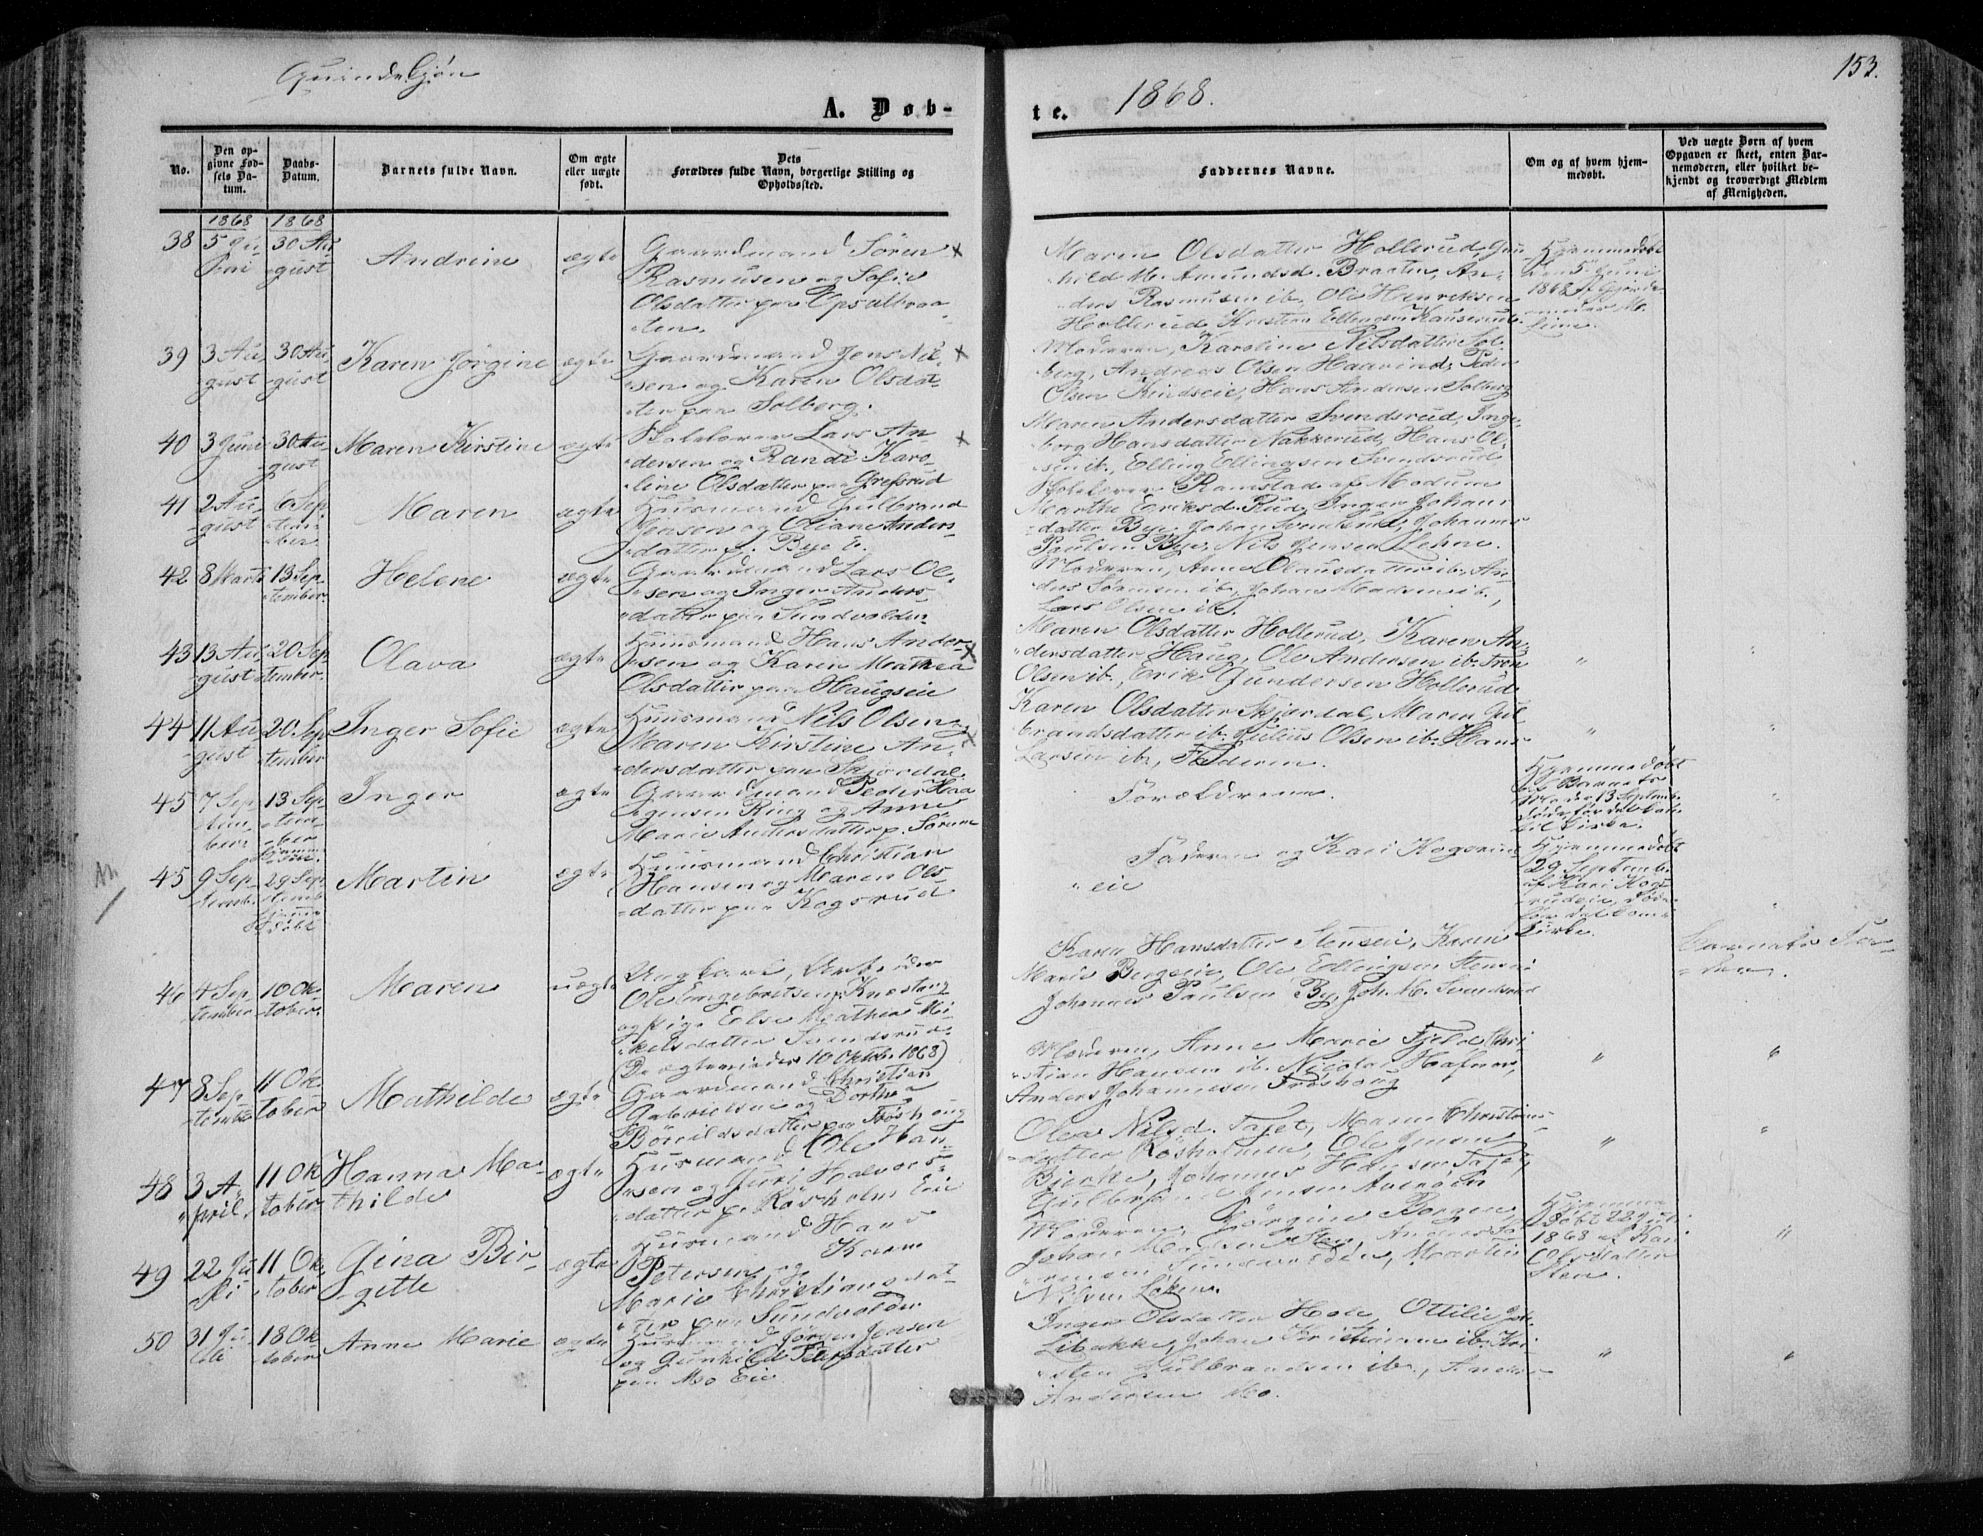 Quindekjøn
153.
A. Døb-
te. 1868.
No.
Den op-
givne Fød-
sels Da-
tum.
Daabs-
Datum.
Barnets fulde Navn.
Om ægte
eller uægte
født.
Dets
Forældres fulde Navn, borgerlige Stilling og
Opholdssted.
Faddernes Navne.
Om og af hvem hjem-
medøbt.
Ved uægte Børn af hvem
Opgaven er skeet, enten Bar-
nemoderen, eller hvilket be-
kjendt og troværdigt Medlem
af Menigheden.
1868
1868
38
30 Au
gust
Andrine
ægte
Gaardmand Sören
Rasmusen og Sofie
Olsdatter paa Opsalbraa-
ten.
Maren Olsdatter Hollerud, Gun
hild M. Amundsd. Braaten, An-
ders Rasmusen ib., Ole Henriksen
Hollerud, Kristian Ellingsen
Hjemmedøbt
den 5 Juni
39
3 Au
gust
30 Au
gust
Karen Jørgine
ægte
Gaardmand Jens Nil-
sen og Karen Olsdat-
ter paa Solberg.
Moderen, Karoline Nilsdatter Sol-
berg, Andreas Olsen Haarind, Peder
Olsen Rindseie, Hans Andersen Solberg
40
3 Juni
30 Au
gust
Maren Kirstine
ægte
Skolelærer Lars An-
dersen og Randi Karo-
line Olsdatter paa Grefsrud
Maren Andersdatter Svendsrud, Inge-
borg Hansdatter Nakkerud, Hans Ol-
sen ib., Elling Ellingsen Svendsrud
Skolelærer Ramstad af Modum
41
2 Au
gust
6 Sep
tem
ber.
Maren
ægte
Husmand Gulbrand
Jensen og Oliane Anders
datter p. Bye E.
Marthe Eriksd. Rud, Inger Johann
datter Bye, Johan Svendsrud, Johannes
Paulsen Bye, Nils Jensen Lehne.
42
8 Marts
13 Sep
tember.
Helene
ægte
Gaardmand Lars Ol-
sen og Inger Anders-
datter paa Sundvolden
Moderen, Anne Olausdatter ib., An
ders Sörensen ib., Johan Madsen ib.,
Lars Olsen ib.
43
13 Au
gust
20 Sep
tember.
Olava
ægte
Huusmand Hans Ander-
sen og Karen Mathea
Olsdatter paa Haugseie
Maren Olsdatter Hollerud, Karen An-
dersdatter Haug, Ole Andersen ib.
Olsen ib., Erik Gundersen Hollerud
44
11 Au
gust
20 Sep
tember
Inger Sofie
ægte
Huusmand Nils Olsen
Maren Kirstine An-
dersdatter paa Skjørdal
Karen Olsdatter Skjørdal, Maren Gul
brandsdatter ib. Julius Olsen ib. Hans
Larsen ib., Faderen.
45
7 Sep
tem
ber
13 Sep
tem
ber
Inger
ægte
Gaardmand Peder Haa
gensen Ring og Anne
Marie Andersdatter p. Sørum
Forældrene.
Hjemmedøbt
af Barnets
Moder 13 Septemb.
45
9 Sep
temb.
29 Sep
temb
Martin
ægte
Huusmand Christian
Hansen og Maren Ols
datter paa Kogsrud
Faderen og Kari Kogsrud
eie
Hjemmedøbt
29 Septemb.
af Kari Kogs
rudeie,
46
4 Sep
tember
10 Ok
tober.
Maren
uægte
Ungkarl,
Ole Engebretsen Knestang
og Pige Else Mathea Mi-
kelsdatter Svendsrud.
(De ægteviedes 10 Oktob. 1868)
Karen Hansdatter Stenseie, Karen
Marie Bergseie, Ole Ellingsen Stenseie
Johannes Paulsen By, Joh. M. Svendsrud
Barnets Fa-
der.
47
8 Sep
tember
11 Ok
tober
Mathilde
ægte
Gaardmand Christian
Gabrielsen og Dorthea
Böruldsdatter paa Frøshoug
Moderen, Anne Marie Fjeld, Chri
stian Hansen ib. Nicolai Hafnor,
Anders Johannesen Frøshoug
48
3 A
pril.
11 Ok
tober
Hanna Ma-
thilde
ægte
Husmand Ole Han-
sen og Guri Halvors-
datter p. Rösholm Eie
Olea Nilsd. Tajet, Maren Christians-
datter Rösholmen, Ole Jensen
Bjerke, Johannes Hansen Tajet,
Gulbrand Jensen Averøen
49
22 Ju
li
11 Ok
tober
Gina Bir-
gitte
ægte
Husmand Hans
Petersen og Karen
Marie Christiansdat-
ter paa Sundvolden
Moderen, Jørgine Borgen,
Johan Madsen Sten, Anders Sö
rensen Sundvolden, Martin
Nilsen Löken.
Hjemme
døbt 22 Juli
1868 af Kari
Olsdatter
Sten.
50
31 Ju
li
18 Ok
tober
Anne Marie
ægte
Husmand Jörgen Jensen
og Gunhild Petersdatter
paa Mo Eie
Inger Olsdatter Hole, Ottilie Joh.
Libakke, Johan Kristiansen ib. Kri
sten Gulbrandsen ib., Anders
Andersen Mo.